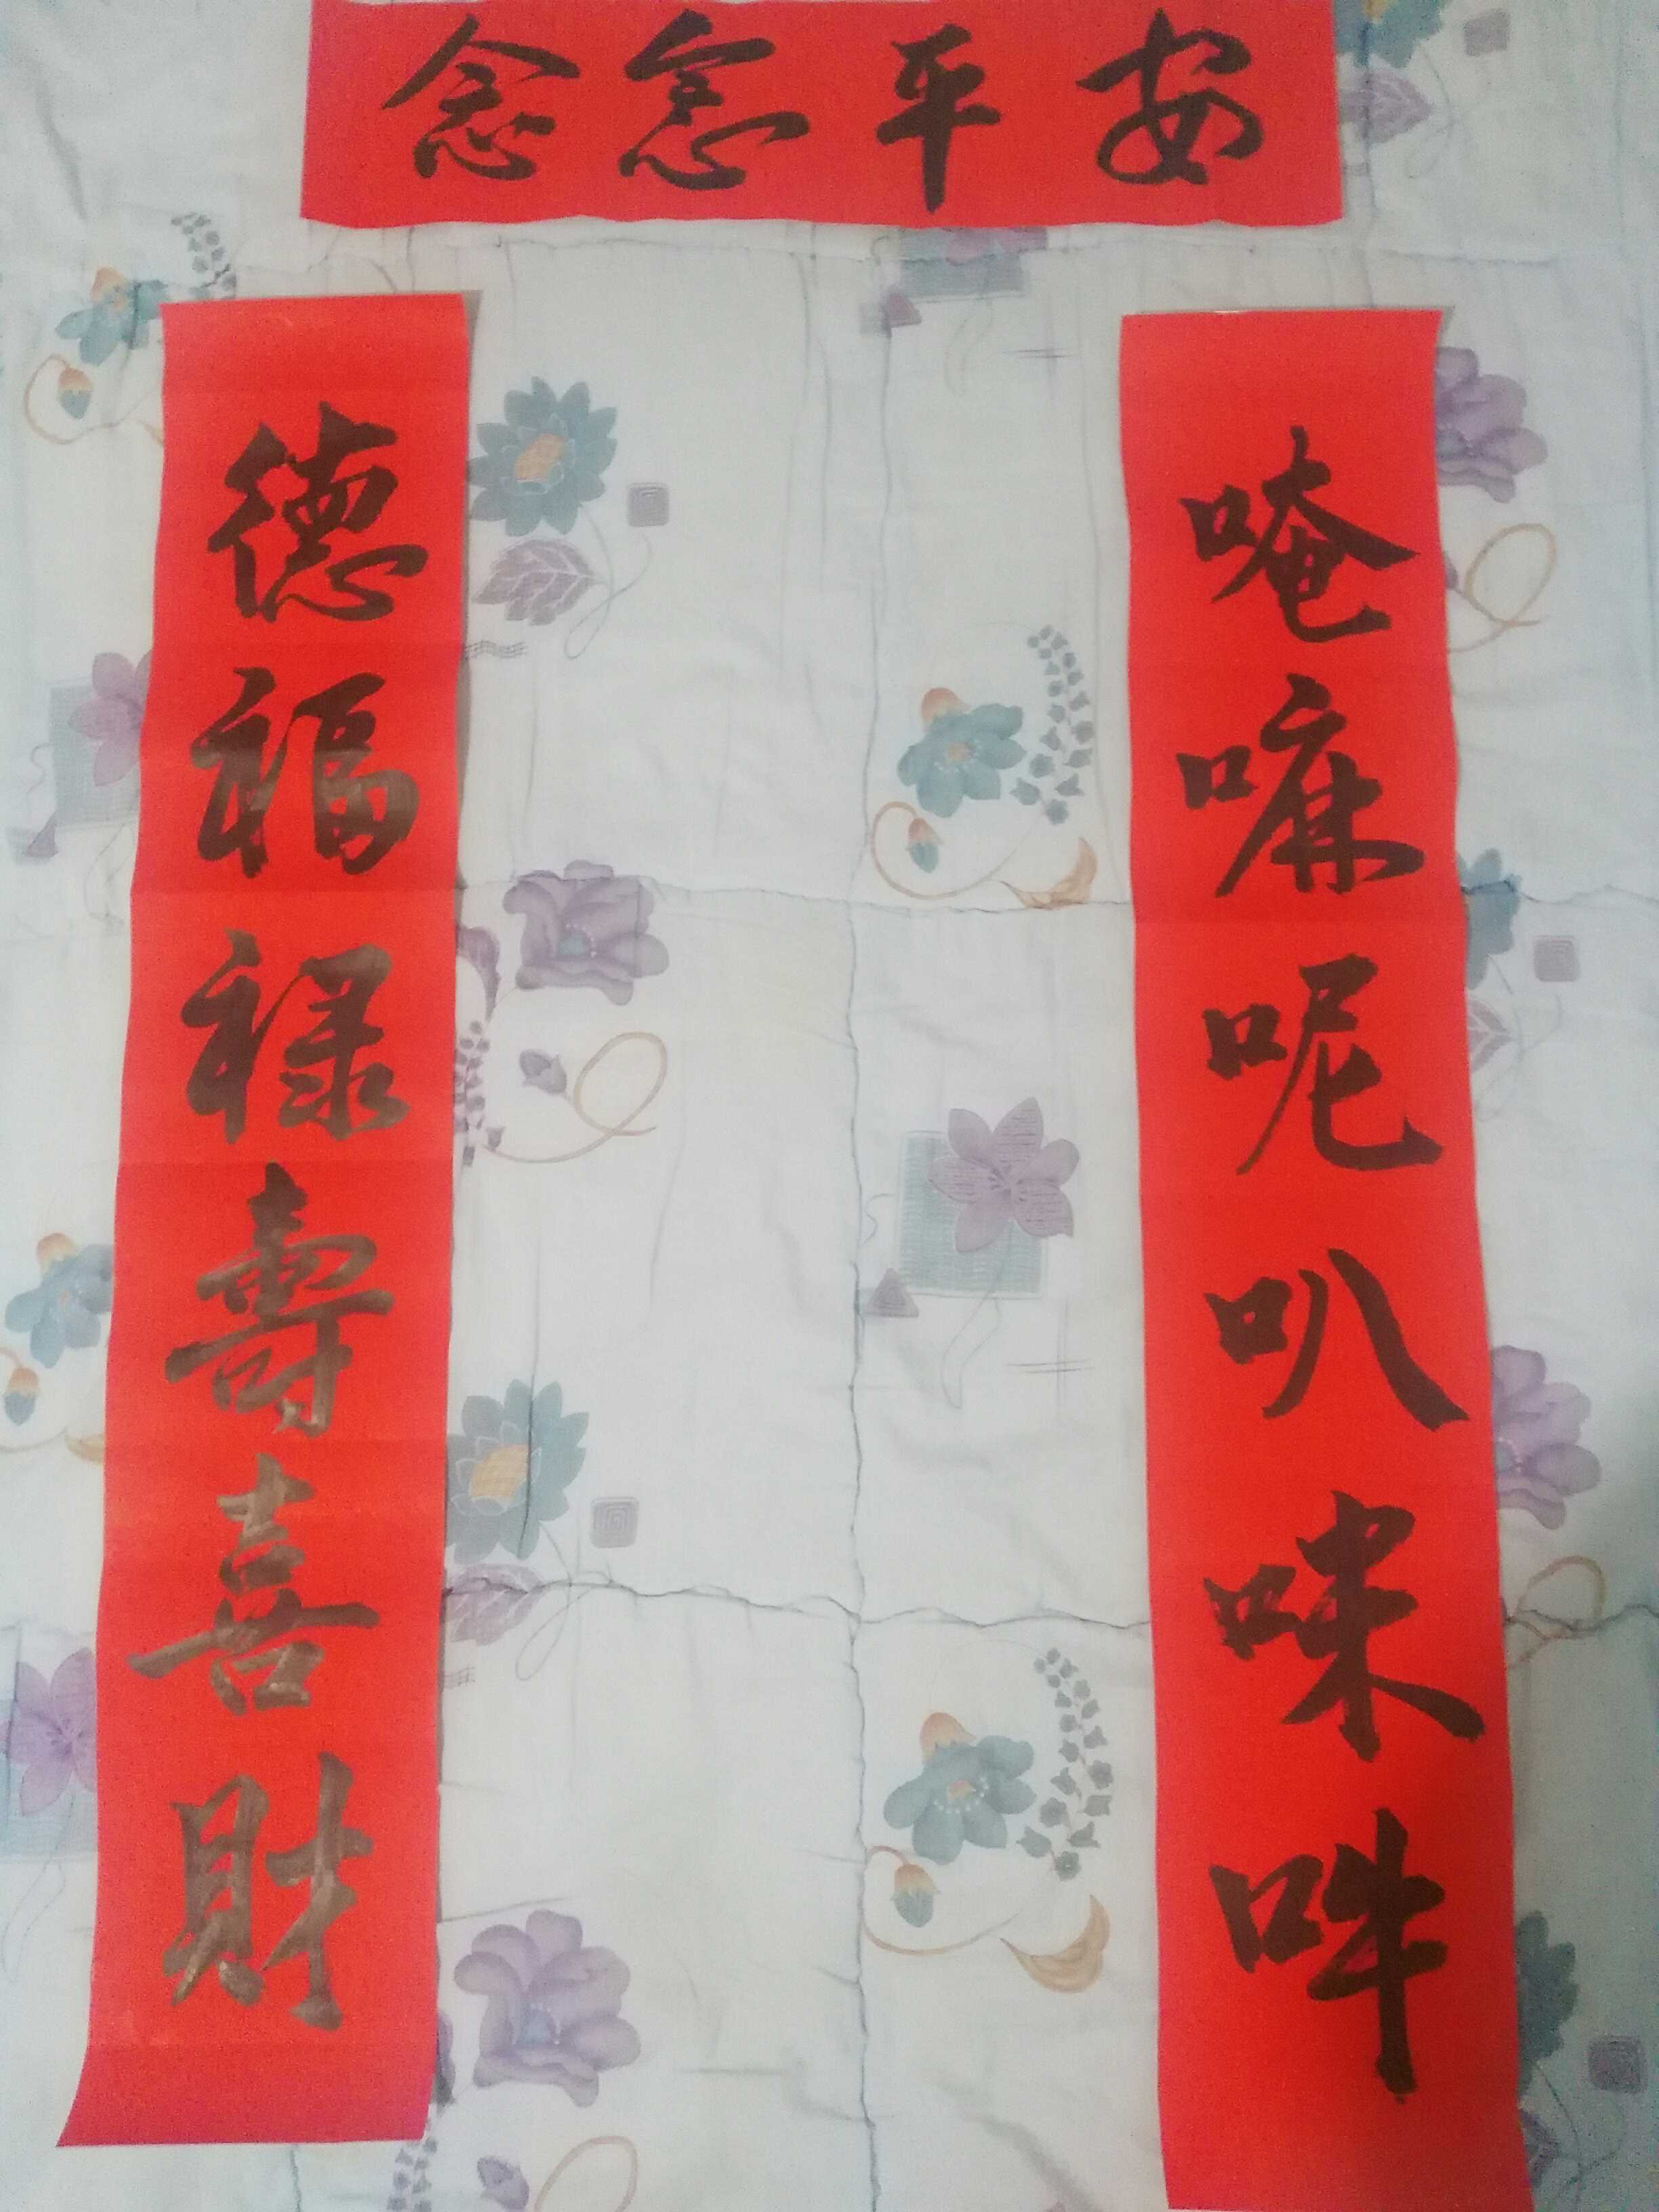 念念平安
唵嘛呢叭咪吽
德福禄壽喜財